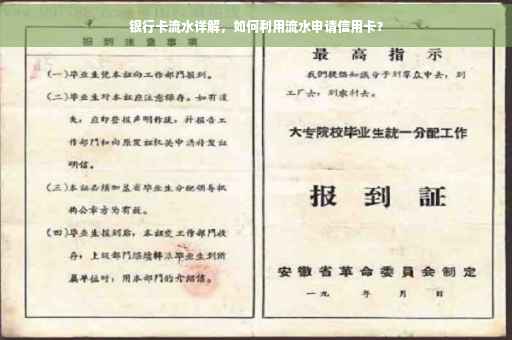 银行卡流水详解，如何利用流水申请信用卡？
报到注意事项
(一)毕业生凭本证向工作部门报到。
(二)毕业生对本证应注意保存。如有遗
失，应即登报声明作废，并报告工
作部门和向原发证机关申请补发证
明信。
(三)本证必须加盖省毕业生分配领导机
构公章方为有效。
(四)毕业生报到后，本证交工作部门收
存；上级部门
毕业生到所
属单位时，用本部门的介绍信。
最高指示
我们提倡知识分子到羣众中去，到
工厂去，到农村去。
大专院校毕业生統一分配工作
报到証
安徽省革命委員会制定
一九 年 月 日